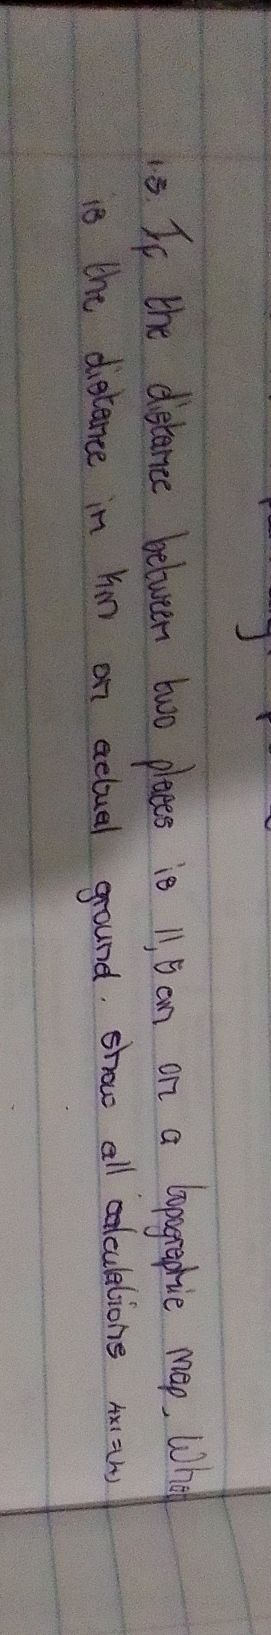 1.3. If the distance between two places is 11,5 cm on a topographic map, What
is the distance in km on actual ground. show all calculations 4x1=(4)